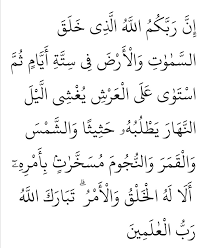 إِنَّ رَبَّكُمُ اللَّهُ الَّذِى خَلَقَ
السَّمٰوٰتِ وَالْأَرْضَ فِى سِتَّةِ أَيَّامٍ ثُمَّ
اسْتَوٰى عَلَى الْعَرْشِ يُغْشِى الَّيْلَ
النَّهَارَ يَطْلُبُهُۥ حَثِيثًا وَالشَّمْسَ
وَالْقَمَرَ وَالنُّجُومَ مُسَخَّرٰتٍۭ بِأَمْرِهِۦٓ ۗ
أَلَا لَهُ الْخَلْقُ وَالْأَمْرُ ۗ تَبَارَكَ اللَّهُ
رَبُّ الْعٰلَمِينَ